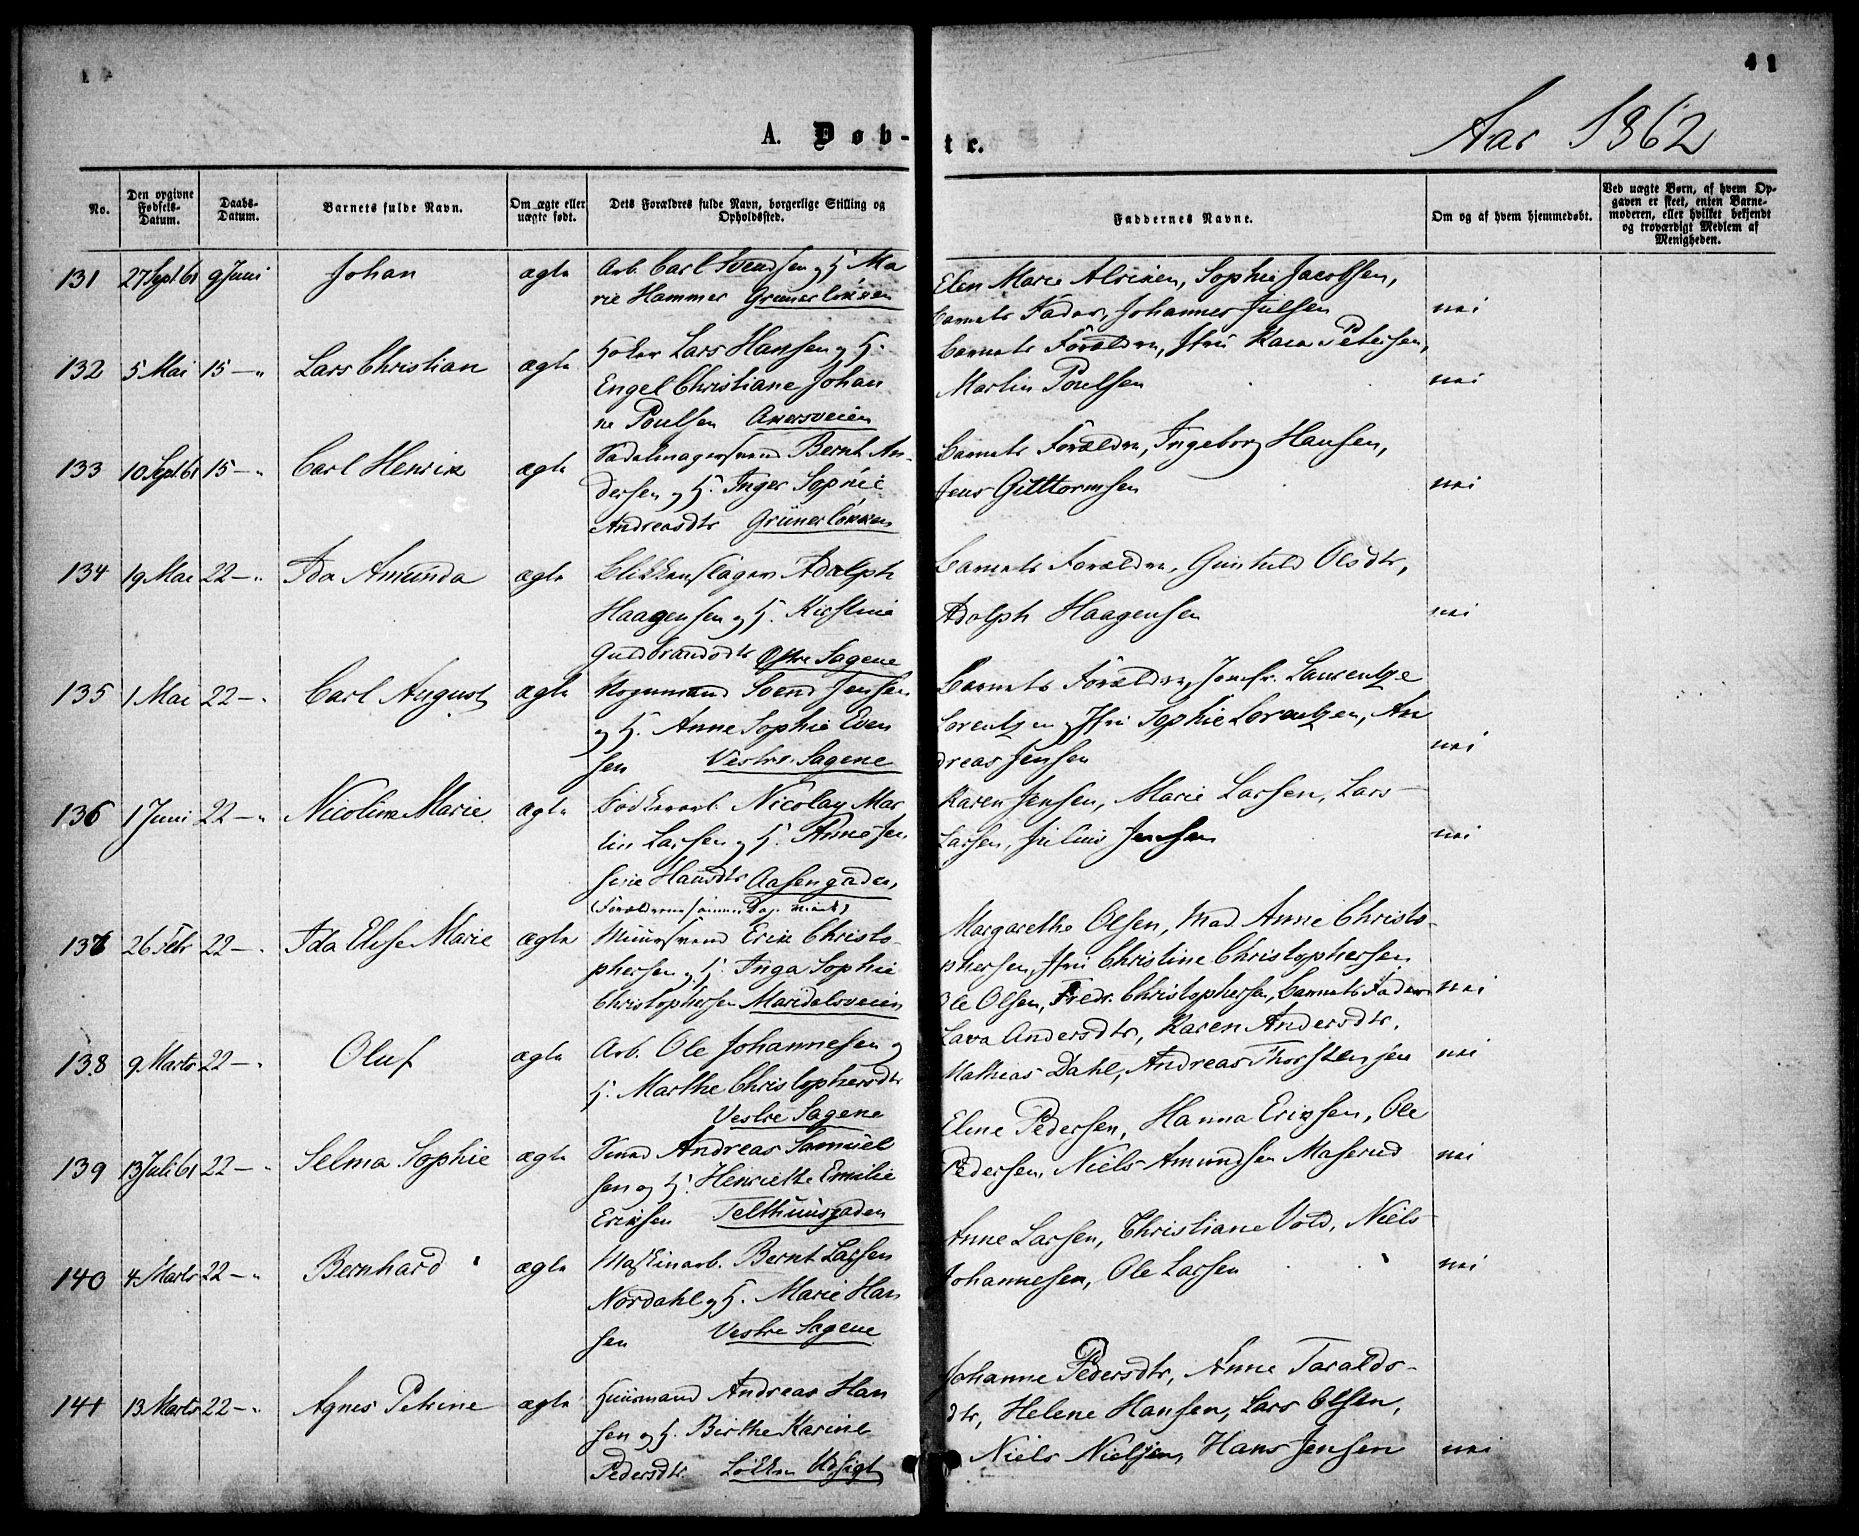 41
A. Døb-
te.
Aar 1862
No.
Den opgivne Fødsels-Datum.
Daabs-Datum.
Barnets fulde Navn.
Om ægte eller uægte født.
Dets Forældres fulde Navn, borgerlige Stilling og Opholdssted.
Faddernes Navne.
Om og af hvem hjemmedøbt.
Ved uægte Børn, af hvem Opgaven er skeet, enten Barnemoderen, eller hvilket bekjendt og troværdigt Medlem af Menigheden.
131 27 Sept 61 9 Juni Johan ægte Arb. Carl Svendsen og H. Ma
rie Hammer Grünerløkken
Elen Marie Alvixen, Sophie Jacobsen,
Barnets Fader, Johannes Julsen nei
132 5 Mai 15 — „ Lars Christian ægte Høker Lars Hansen og H.
Engel Christiane Johan
ne Poulsen Akersveien
Barnets Forældre, Jfru Kaia Petersen,
Martin Poulsen nei
133 10 Sept 61 15 — „ Carl Henrik ægte Sadelmagersvend Bernt An-
dersen og H. Inger Sophie
Andreasdtr Grünerløkken
Barnets Forældre, Ingeborg Hansen,
Jens Guttormsen nei
134 19 Mai 22 — „ Ida Amunda ægte Blikkenslager Adolph
Haagensen og H. Kirstine
Guldbrandsdtr Østre Sagene
Barnets Forældre, Gunhild Olsdtr,
Adolph Haagensen nei
135 1 Mai 22 — „ Carl August ægte Svend Jensen
og H. Anne Sophie Even
sen Vestre Sagene
Barnets Forældre, Jomfr. Laurentze
Lorentzen og Jfru Sophie Lorentzen, An
dreas Jensen nei
136 1 Juni 22 — „ Nicoline Marie ægte Bødkerarb. Nicolay Mar
tin Larsen og H. Anne Jen
sine Hansdtr Aasengaden,
(Forældrene samme Dag viede)
Karen Jensen, Marie Larsen, Lars
Larsen, Julius Jensen nei
137 26 Febr 22 — „ Ida Elise Marie ægte Muursvend Erik Christo-
phersen og H. Inga Sophie
Christophersen Maridalsveien
Margarethe Olsen, Mad. Anne Christo-
phersen, Jfru Christine Christophersen
Ole Olsen, Fredr. Christophersen, Barnets Fader nei
138 9 Marts 22 — „ Oluf ægte Arb. Ole Johannesen og
H. Marthe Christophersdtr
Vestre Sagene
Lava Andersdtr, Karen Andersdtr,
Mathias Dahl, Andreas Thorstensen nei
139 13 Juli 61 22 — „ Selma Sophie ægte Andreas Samuel
sen og H. Henriette Emilie
Eriksen Telthuusgaden
Eline Pedersen, Hanna Eriksen, Ole
Pedersen, Niels Amundsen Maserud nei
140 4 Marts 22 — „ Bernhard ægte Maskinarb. Bernt Larsen
Nordahl og H. Marie Han
sen Vestre Sagene
Anne Larsen, Christiane Vold, Niels
Johannesen, Ole Larsen nei
141 13 Marts 22 — „ Agnes Petrine ægte Huusmand Andreas Han
sen og H. Birthe Karine
Pedersdtr Løkken Udsigt
Johanne Pedersdtr, Anne Taralds-
dtr, Helene Hansen, Lars Olsen,
Niels Nielsen, Hans Jensen nei